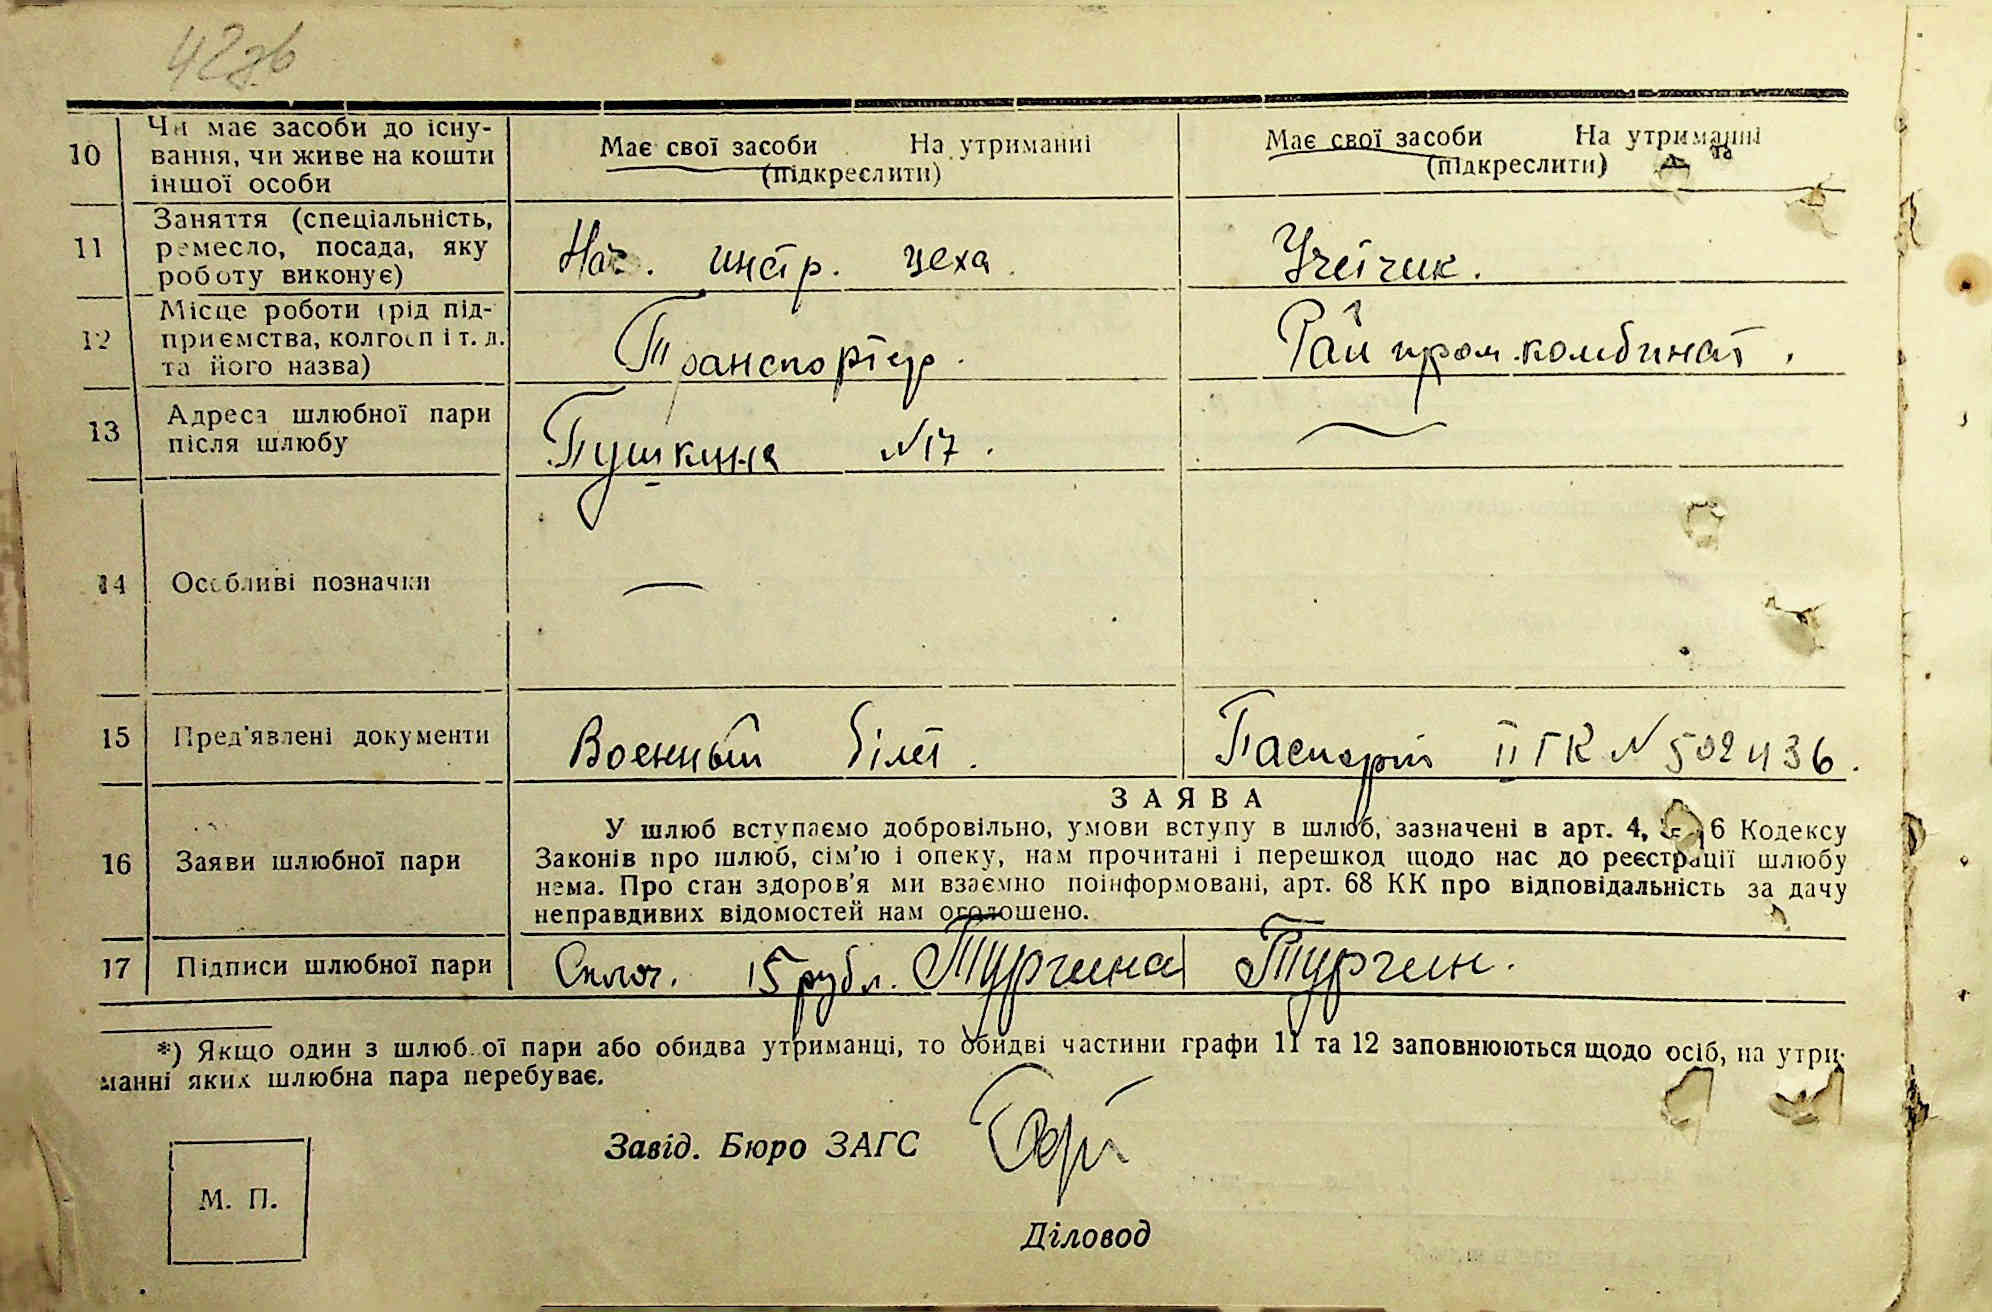 42зв
10 Чи має засоби до існу- Має свої засоби На утриманні Має свої засоби На утриманні
вання, чи живе на кошти (підкреслити) (підкреслити)
іншої особи
11 Заняття (спеціальність, Нач. инстр. цеха Учётчик.
ремесло, посада, яку
роботу виконує)
12 Місце роботи (рід під- Транспортер. Райпромкомбинат.
приємства, колгосп і т. д.
та його назва)
13 Адреса шлюбної пари Пушкина №17.
після шлюбу
14 Особливі позначки —
15 Пред'явлені документи Военный білет. Паспорт II ГК №502436.
З А Я В А
У шлюб вступаємо добровільно, умови вступу в шлюб, зазначені в арт. 4, 6 Кодексу
16 Заяви шлюбної пари Законів про шлюб, сім'ю і опеку, нам прочитані і перешкод щодо нас до реєстрації шлюбу
нема. Про стан здоров'я ми взаємно поінформовані, арт. 68 КК про відповідальність за дачу
неправдивих відомостей нам оголошено.
17 Підписи шлюбної пари 15 рубл. Тургина Тургин.
*) Якщо один з шлюбної пари або обидва утриманці, то обидві частини графи 11 та 12 заповнюються щодо осіб, на утри-
манні яких шлюбна пара перебуває.
Завід. Бюро ЗАГС
М. П.
Діловод